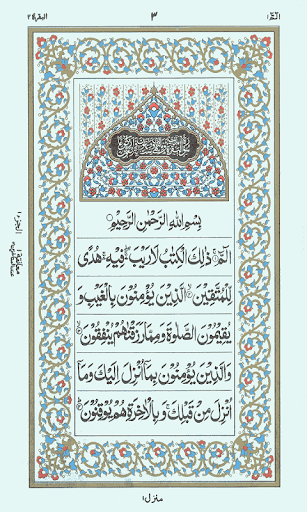 البقرة ٢
٣
الٓمّٓ ١
بِسْمِ اللهِ الرَّحْمٰنِ الرَّحِيْمِ
الٓمّٓ ذٰلِكَ الْكِتٰبُ لَا رَيْبَ فِيْهِ هُدًى
لِّلْمُتَّقِيْنَ الَّذِيْنَ يُؤْمِنُوْنَ بِالْغَيْبِ وَ
يُقِيْمُوْنَ الصَّلٰوةَ وَمِمَّا رَزَقْنٰهُمْ يُنْفِقُوْنَ
وَالَّذِيْنَ يُؤْمِنُوْنَ بِمَآ اُنْزِلَ اِلَيْكَ وَمَآ
اُنْزِلَ مِنْ قَبْلِكَ وَبِالْاٰخِرَةِ هُمْ يُوْقِنُوْنَ
معانقة ١
منزل ١